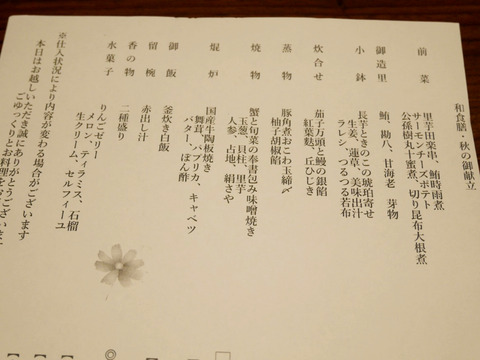 和食膳・秋の御献立
前菜 里芋田楽串、鮪時雨煮
サーモンチーズポテト
公孫樹丸十蜜煮、切り昆布大根煮
御造里 鮪、勘八、甘海老 芽物
小鉢 長芋ときのこの琥珀寄せ
生姜、蓮草、美味出汁
ラレシ、つるつる若布
炊合せ 茄子万頭と鰻の銀餡
紅葉麩、丘ひじき
蒸物 豚角煮おこわ玉締〆
柚子胡椒餡
焼物 蟹と旬菜の奉書包み味噌焼き
玉葱、貝柱、里芋
人参、占地、絹さや
焜炉 国産牛陶板焼き
舞茸、パプリカ、キャベツ
バター、ぽん酢
御飯 釜炊き白飯
留椀 赤出し汁
香の物 二種盛り
水菓子 りんごゼリー
メロン、ティラミス、石榴
生クリーム、セルフィーユ
※仕入状況により内容が変わる場合がございます
本日はお越しいただき誠にありがとうございま
ごゆっくりとお料理をお